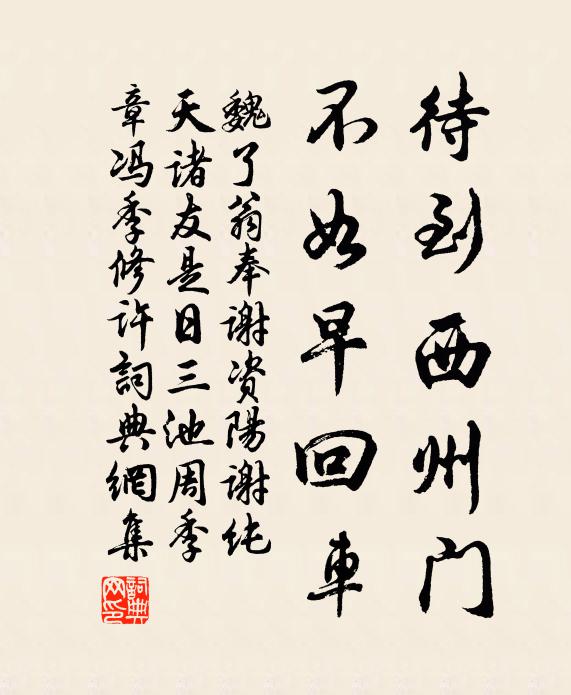 待到西州门
不如早回車
魏了翁奉谢资陽谢纯
天诸友是日三池周季
章冯季修许詞典網集
詞典网印